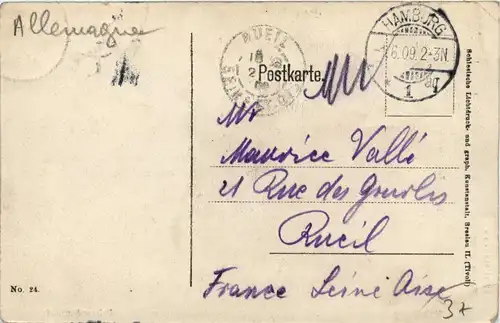 Allemagne
RUEIL
HAMBURG
6.09.2-3N.
1
Postkarte.
Mr
Maurice Vallé
21 Rue des
Rueil
France Seine
37
No. 24.
Schlesische Lichtdruck- und graph. Kunstanstalt, Breslau II. (Tivoli)